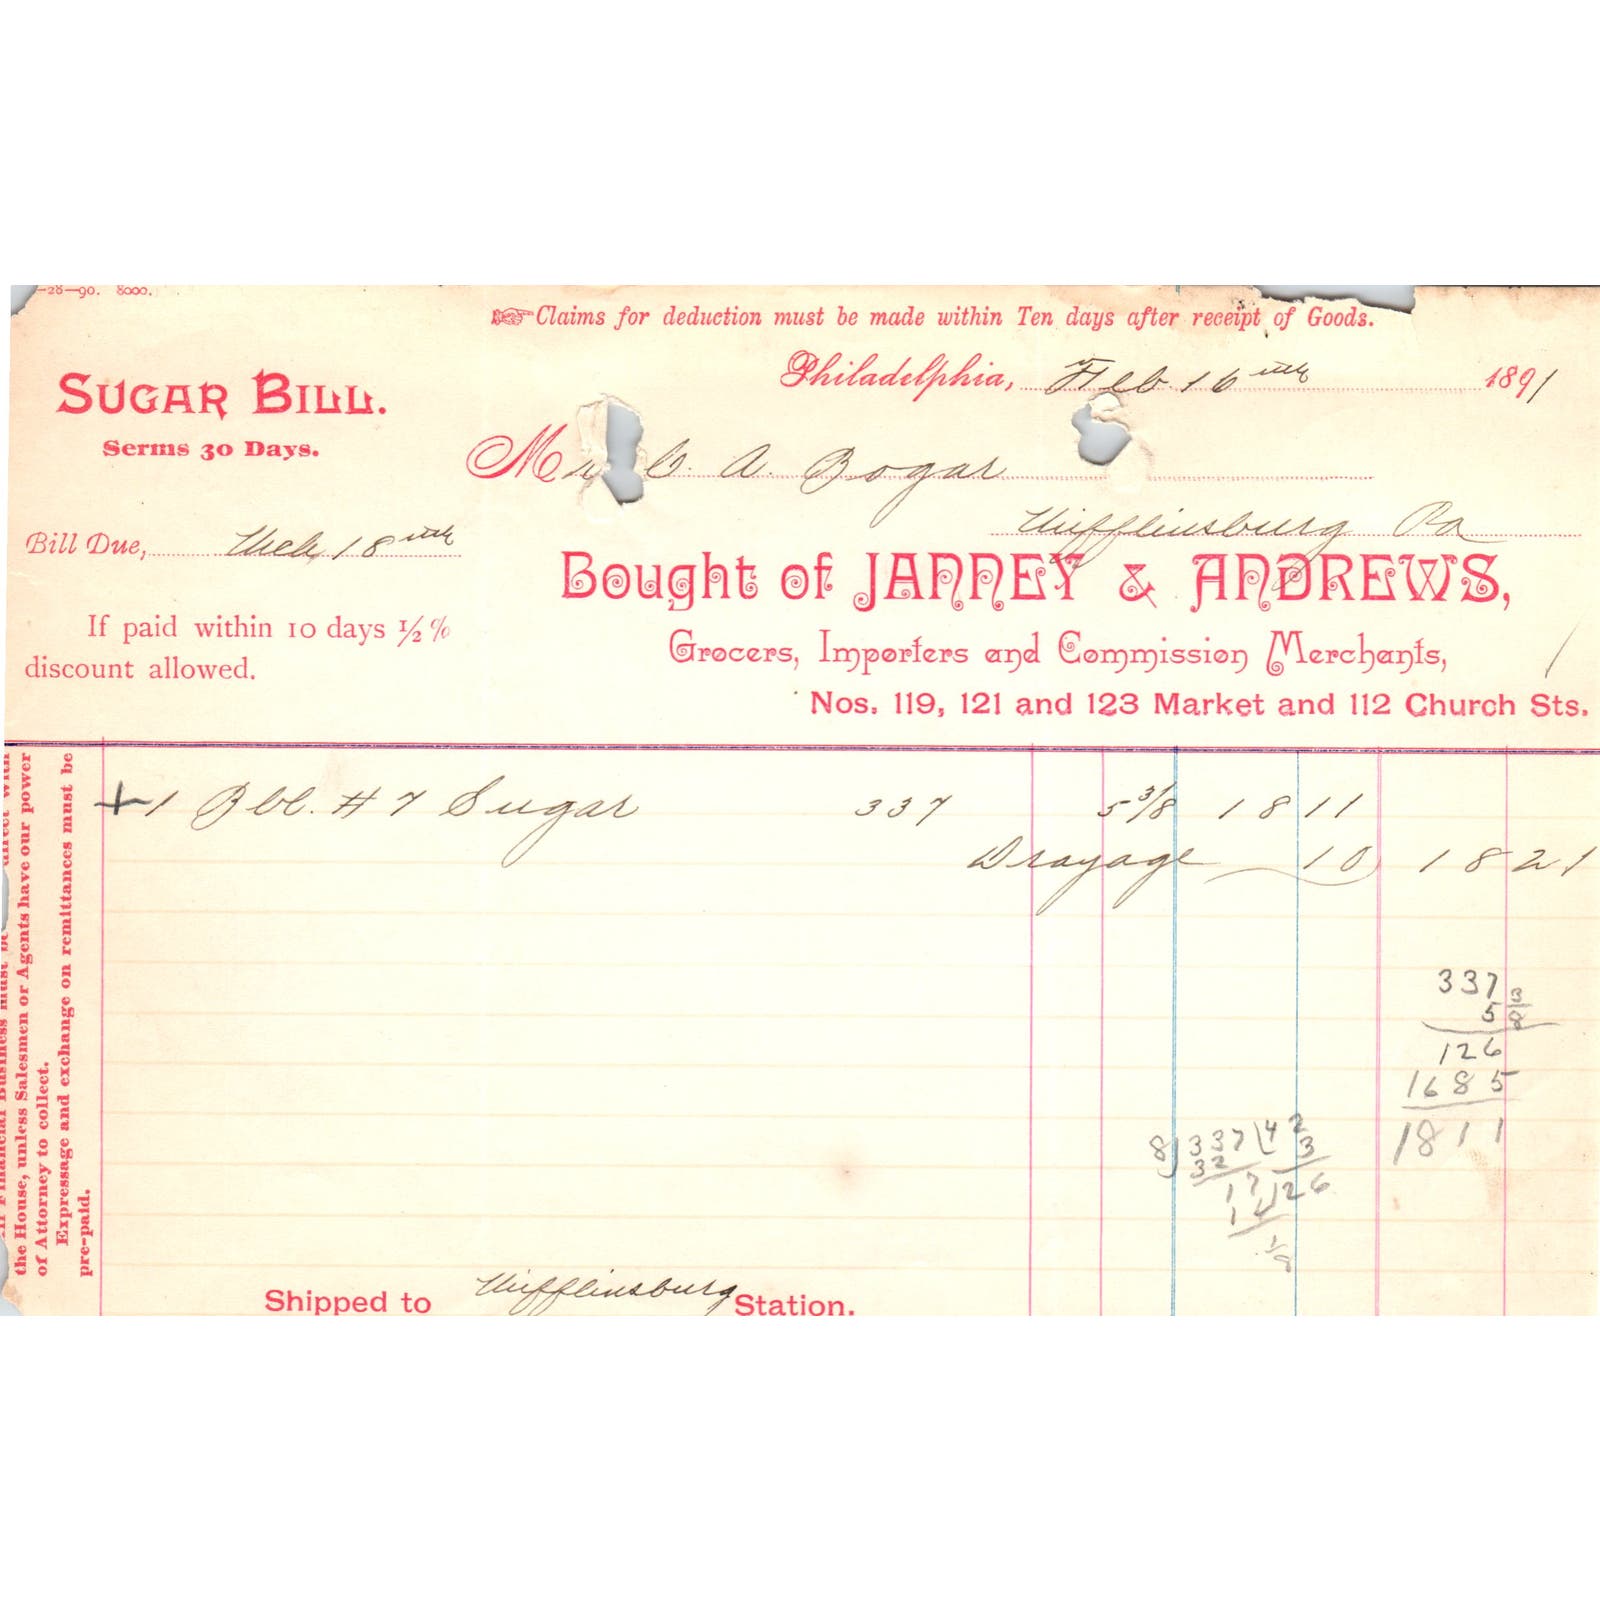 -28-90. 8000.
☞Claims for deduction must be made within Ten days after receipt of Goods.
Philadelphia, Feb 16th 1891
SUGAR BILL.
Serms 30 Days.
M A. Bogar
Mifflinsburg Pa
Bill Due, Mch 18th
Bought of JANNEY & ANDREWS,
If paid within 10 days ½%
discount allowed.
Grocers, Importers and Commission Merchants,
Nos. 119, 121 and 123 Market and 112 Church Sts.
+ 1 Bbl. #7 Sugar 337 5 3/8 18 11
Drayage 10 18 21
337
5 3/8
126
1685
1811
8)337(42
32 3
17 126
1
1/8
Financial Business must be direct with
the House, unless Salesmen or Agents have our power
of Attorney to collect.
Expressage and exchange on remittances must be
pre-paid.
Shipped to Mifflinsburg Station.